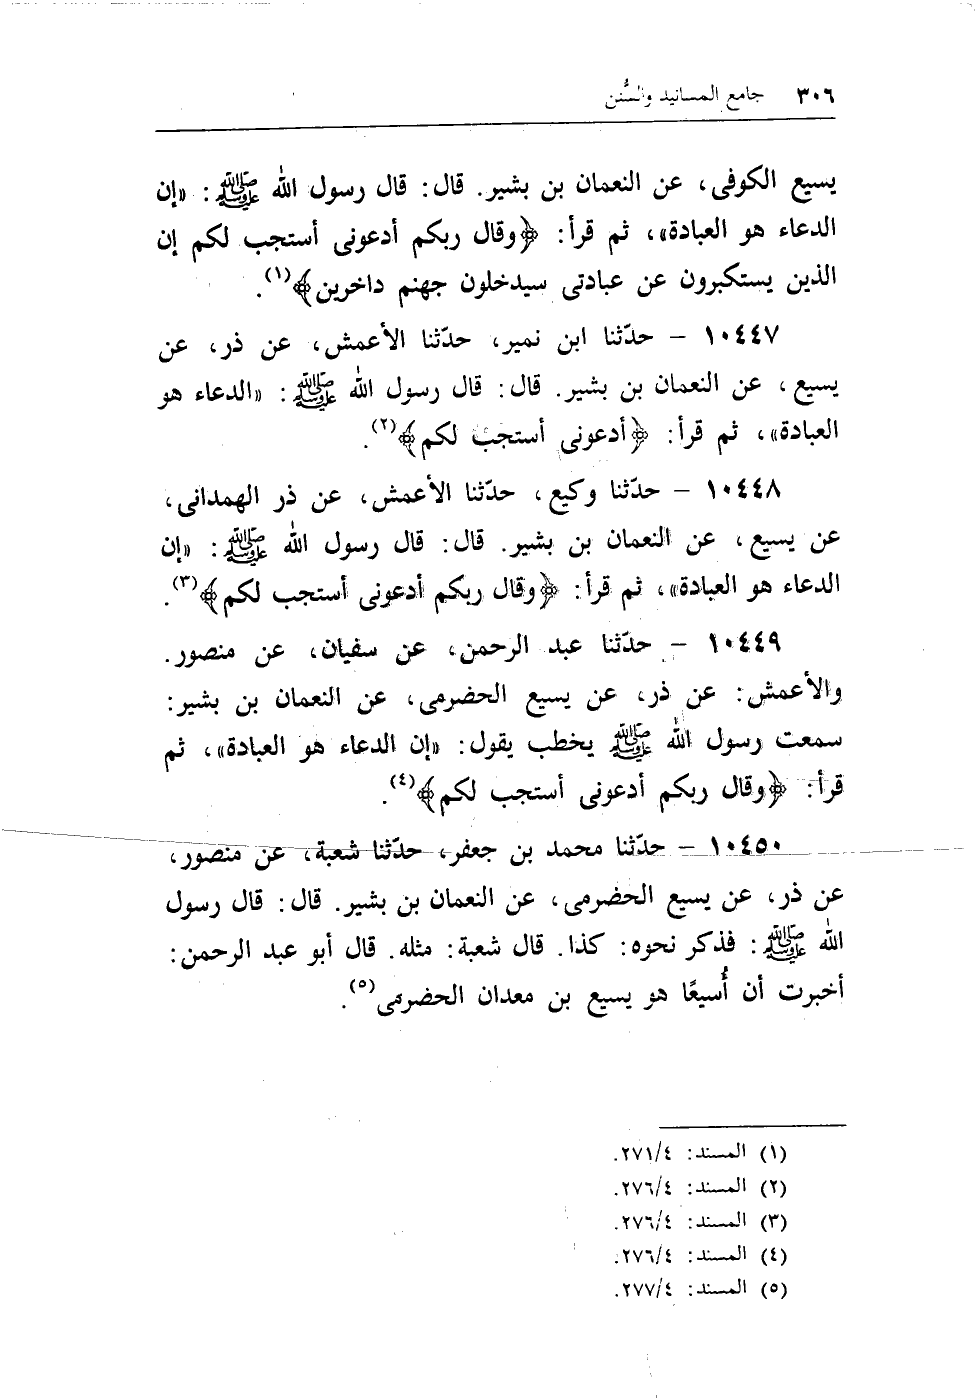 ٣٠٦ جامع المسانيد والسُّنن
يسيع الكوفى، عن النعمان بن بشير. قال: قال رسول الله ﷺ: «إن
الدعاء هو العبادة»، ثم قرأ: ﴿وقال ربكم أدعونى أستجب لكم إن
الذين يستكبرون عن عبادتى سيدخلون جهنم داخرين﴾(١).
١٠٤٤٧ - حدّثنا ابن نمير، حدّثنا الأعمش، عن ذر، عن
يسيع، عن النعمان بن بشير. قال: قال رسول الله ﷺ: «الدعاء هو
العبادة»، ثم قرأ: ﴿أدعونى أستجب لكم﴾(٢).
١٠٤٤٨ - حدّثنا وكيع، حدّثنا الأعمش، عن ذر الهمدانى،
عن يسيع، عن النعمان بن بشير. قال: قال رسول الله ﷺ: «إن
الدعاء هو العبادة»، ثم قرأ: ﴿وقال ربكم أدعونى أستجب لكم﴾(٣).
١٠٤٤٩ - حدّثنا عبد الرحمن، عن سفيان، عن منصور.
والأعمش: عن ذر، عن يسيع الحضرمى، عن النعمان بن بشير:
سمعت رسول الله ﷺ يخطب يقول: «إن الدعاء هو العبادة»، ثم
قرأ: ﴿وقال ربكم أدعونى أستجب لكم﴾(٤).
١٠٤٥٠ - حدّثنا محمد بن جعفر، حدّثنا شعبة، عن منصور،
عن ذر، عن يسيع الحضرمى، عن النعمان بن بشير. قال: قال رسول
الله ﷺ: فذكر نحوه: كذا. قال شعبة: مثله. قال أبو عبد الرحمن:
أخبرت أن أُسيعًا هو يسيع بن معدان الحضرمى(٥).
(١) المسند: ٢٧١/٤.
(٢) المسند: ٢٧٦/٤.
(٣) المسند: ٢٧٦/٤.
(٤) المسند: ٢٧٦/٤.
(٥) المسند: ٢٧٧/٤.